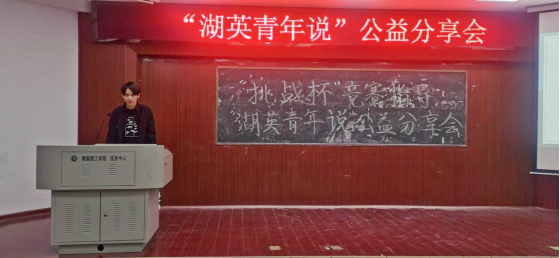 “湖英青年说”公益分享会
“挑战杯”竞赛指导
“湖英青年说”公益分享会
湖南理工学院 信息中心